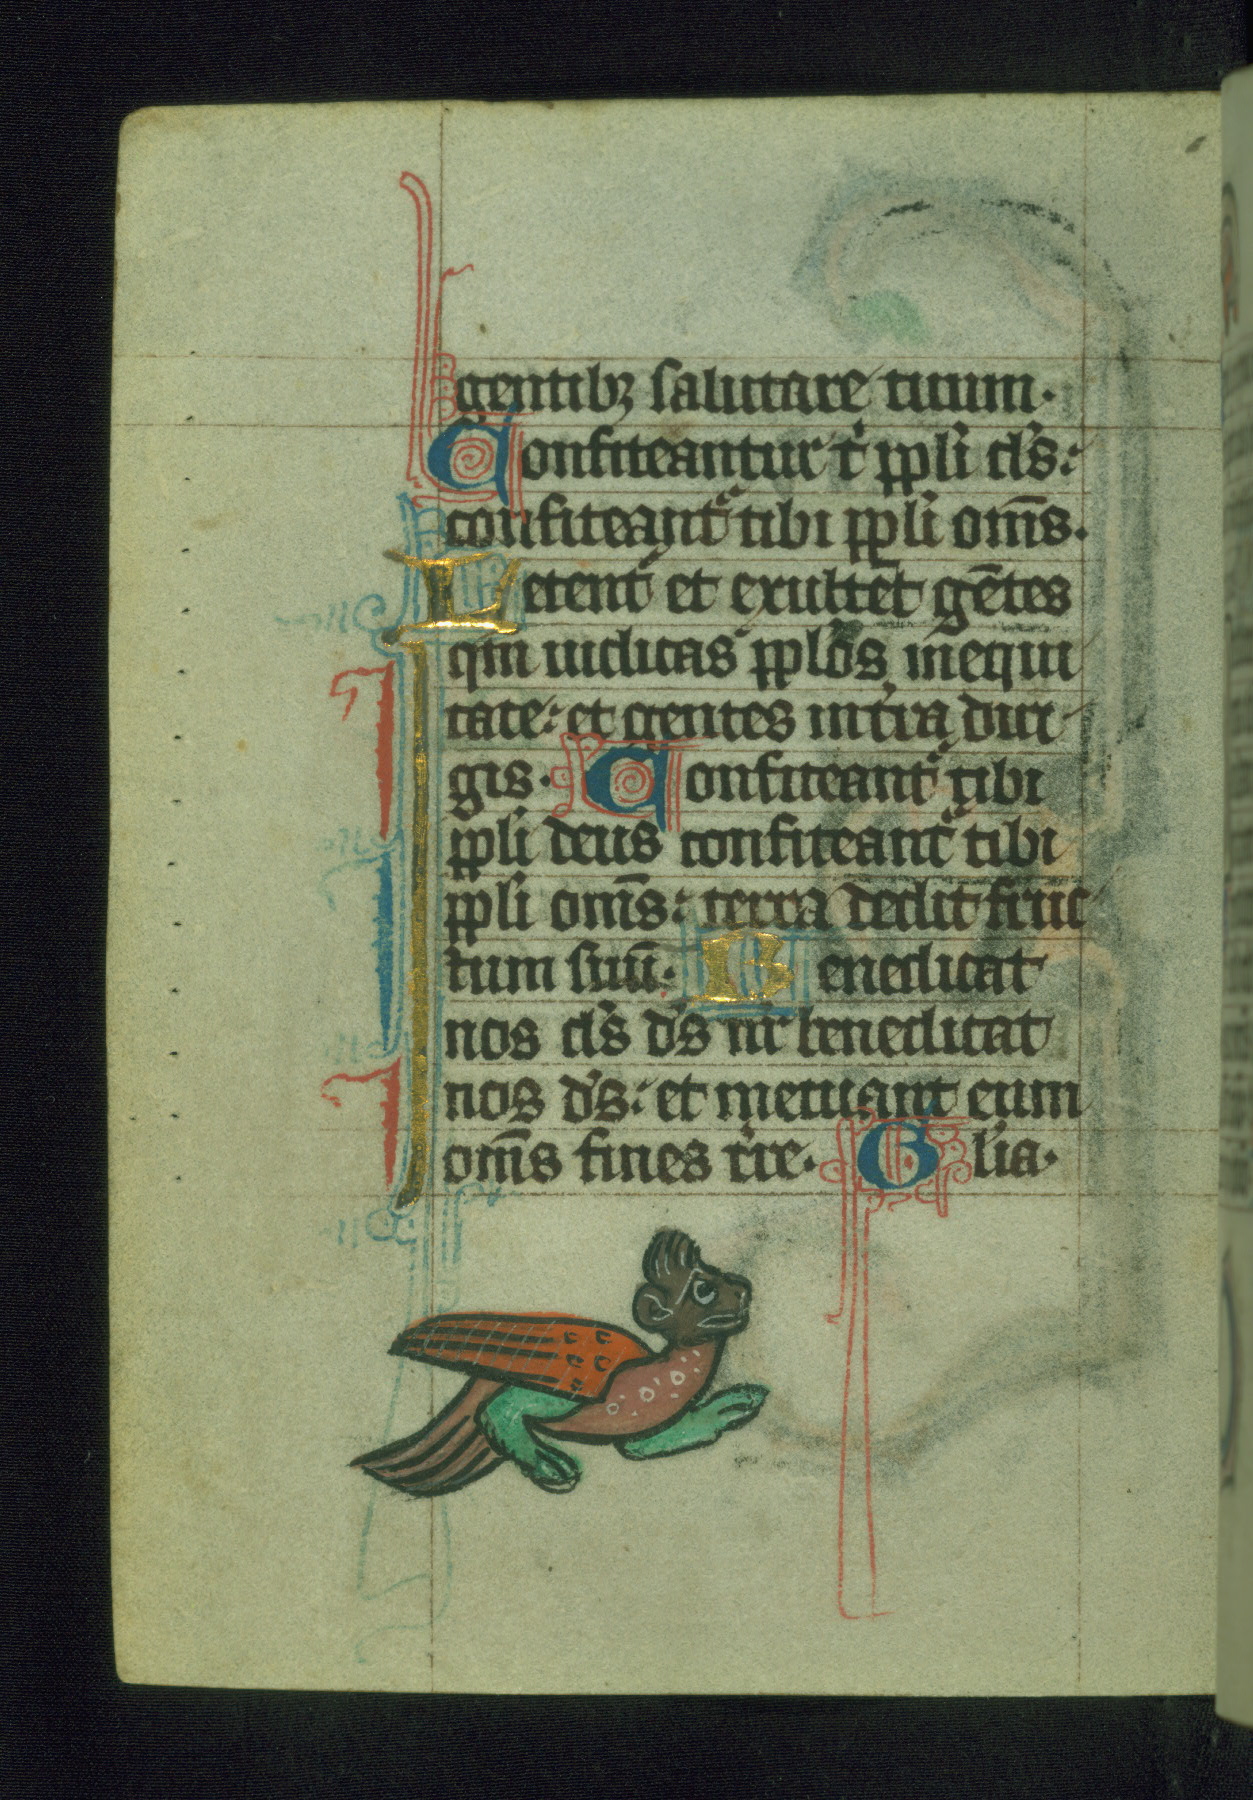 gentibꝫ salutare tuum.
Confiteantur t̾ ppl̾i d̾s:
confiteant᷑ tibi ppl̾i om̄s.
Letent᷑ et exultet gētes
qm̄ iudicas pplōs in equi
tate: et gentes in t̾ra diri
gis. Confiteant᷑ tibi
ppl̾i deus confiteant᷑ tibi
ppl̾i om̄s: terra dedit fruc
tum suū. Benedicat
nos d̾s d̾s nr̄ benedicat
nos d̾s: et metuant eum
om̄s fines t̾re. Gl̾ia.